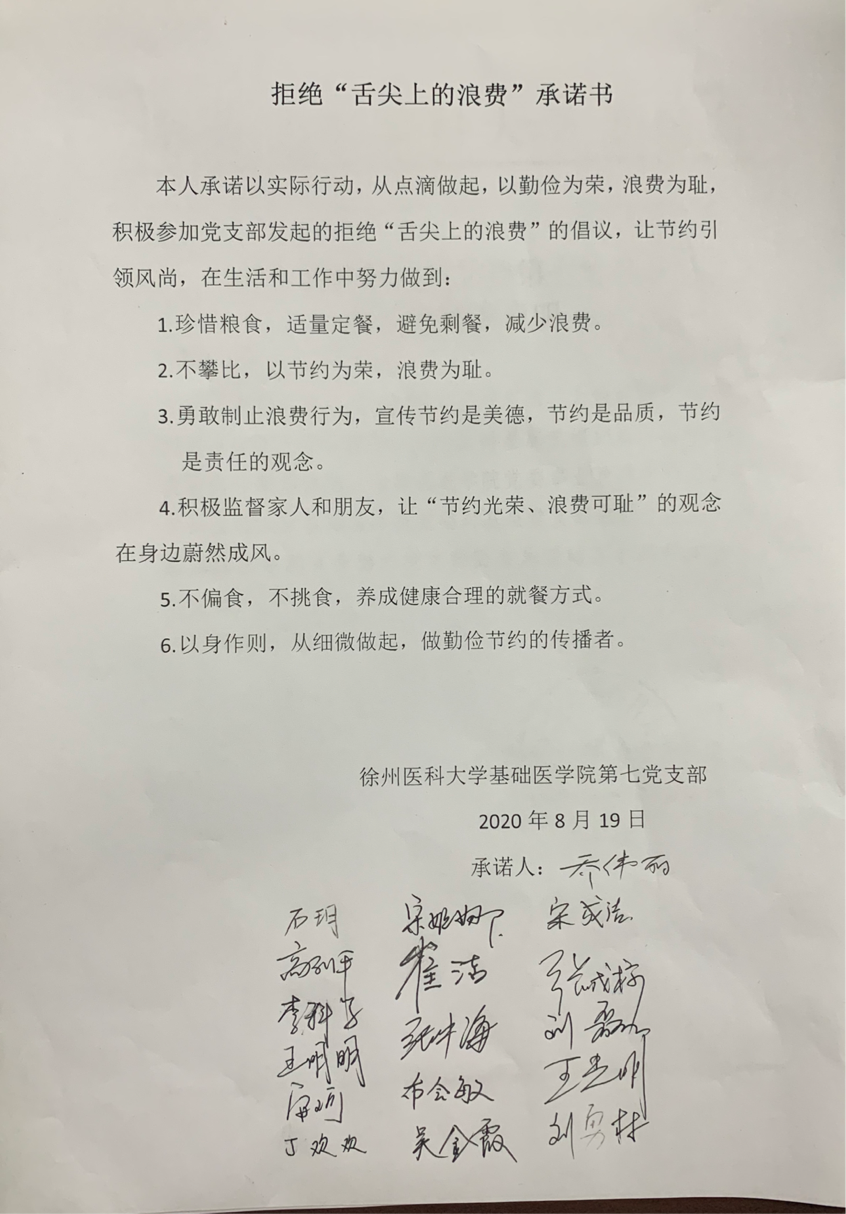 拒绝“舌尖上的浪费”承诺书
本人承诺以实际行动，从点滴做起，以勤俭为荣，浪费为耻，
积极参加党支部发起的拒绝“舌尖上的浪费”的倡议，让节约引
领风尚，在生活和工作中努力做到：
1.珍惜粮食，适量定餐，避免剩餐，减少浪费。
2.不攀比，以节约为荣，浪费为耻。
3.勇敢制止浪费行为，宣传节约是美德，节约是品质，节约
是责任的观念。
4.积极监督家人和朋友，让“节约光荣、浪费可耻”的观念
在身边蔚然成风。
5.不偏食，不挑食，养成健康合理的就餐方式。
6.以身作则，从细微做起，做勤俭节约的传播者。
徐州医科大学基础医学院第七党支部
2020 年 8 月 19 日
承诺人：乔伟丽
石玥
崔洁
王明明
布会敏
丁欢欢 吴金霞 刘勇林